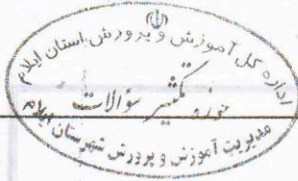 اداره کل آموزش و پرورش استان ایلام
حوزه تکثیر سوالات
مدیریت آموزش و پرورش شهرستان ایلام